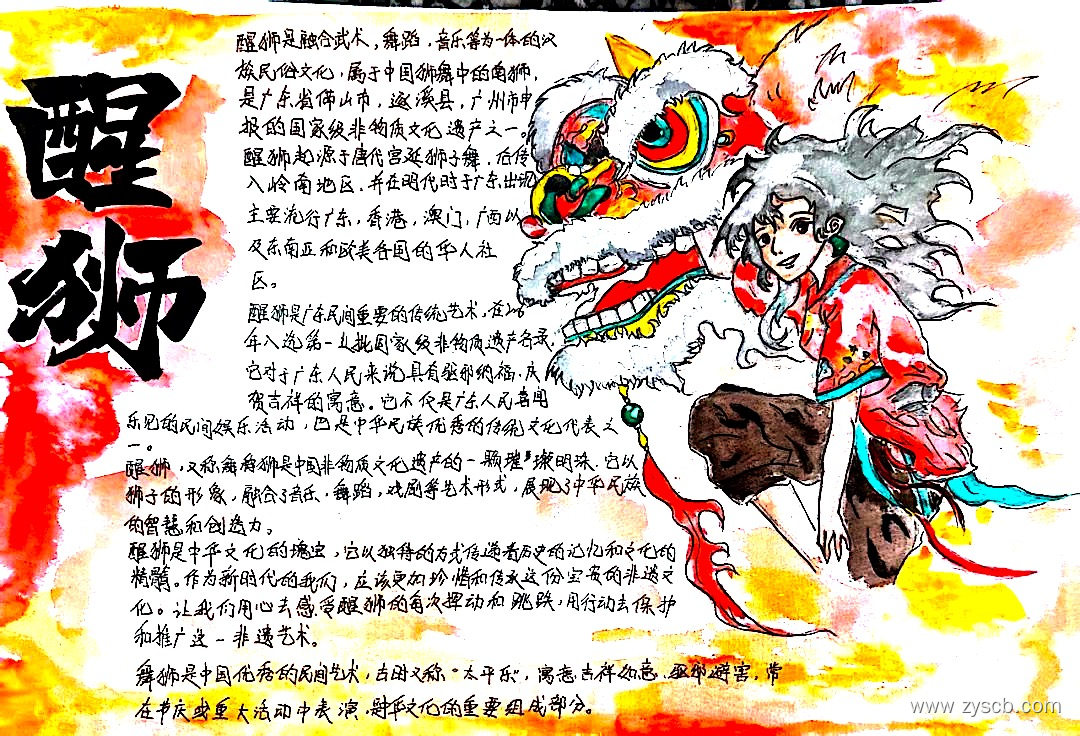 醒狮
醒狮是融合武术，舞蹈，音乐等为一体的汉
族民俗文化，属于中国狮舞中的南狮，
是广东省佛山市，遂溪县，广州市申
报的国家级非物质文化遗产之一。
醒狮起源于唐代宫廷狮子舞，后传
入岭南地区，并在明代时于广东出现
主要流行广东，香港，澳门，广西以
及东南亚和欧美各国的华人社
区。
醒狮是广东民间重要的传统艺术，在
年入选第一批国家级非物质遗产名录，
它对于广东人民来说具有驱邪纳福，庆
贺吉祥的寓意。它不仅是广东人民喜闻
乐见的民间娱乐活动，也是中华民族优秀的传统文化代表之
一。
醒狮，又称舞狮是中国非物质文化遗产的一颗璀璨明珠，它以
狮子的形象，融合了音乐，舞蹈，戏剧等艺术形式，展现了中华民族
的智慧和创造力。
醒狮是中华文化的瑰宝，它以独特的方式传递着历史的记忆和文化的
精髓。作为新时代的我们，应该更加珍惜和传承这份宝贵的非遗文
化。让我们用心去感受醒狮的每次挥动和跳跃，用行动去保护
和推广这一非遗艺术。
舞狮是中国优秀的民间艺术，古时又称“太平乐”，寓意吉祥如意，驱邪避害，常
在节庆或重大活动中表演，是中华文化的重要组成部分。
www.zyscb.com